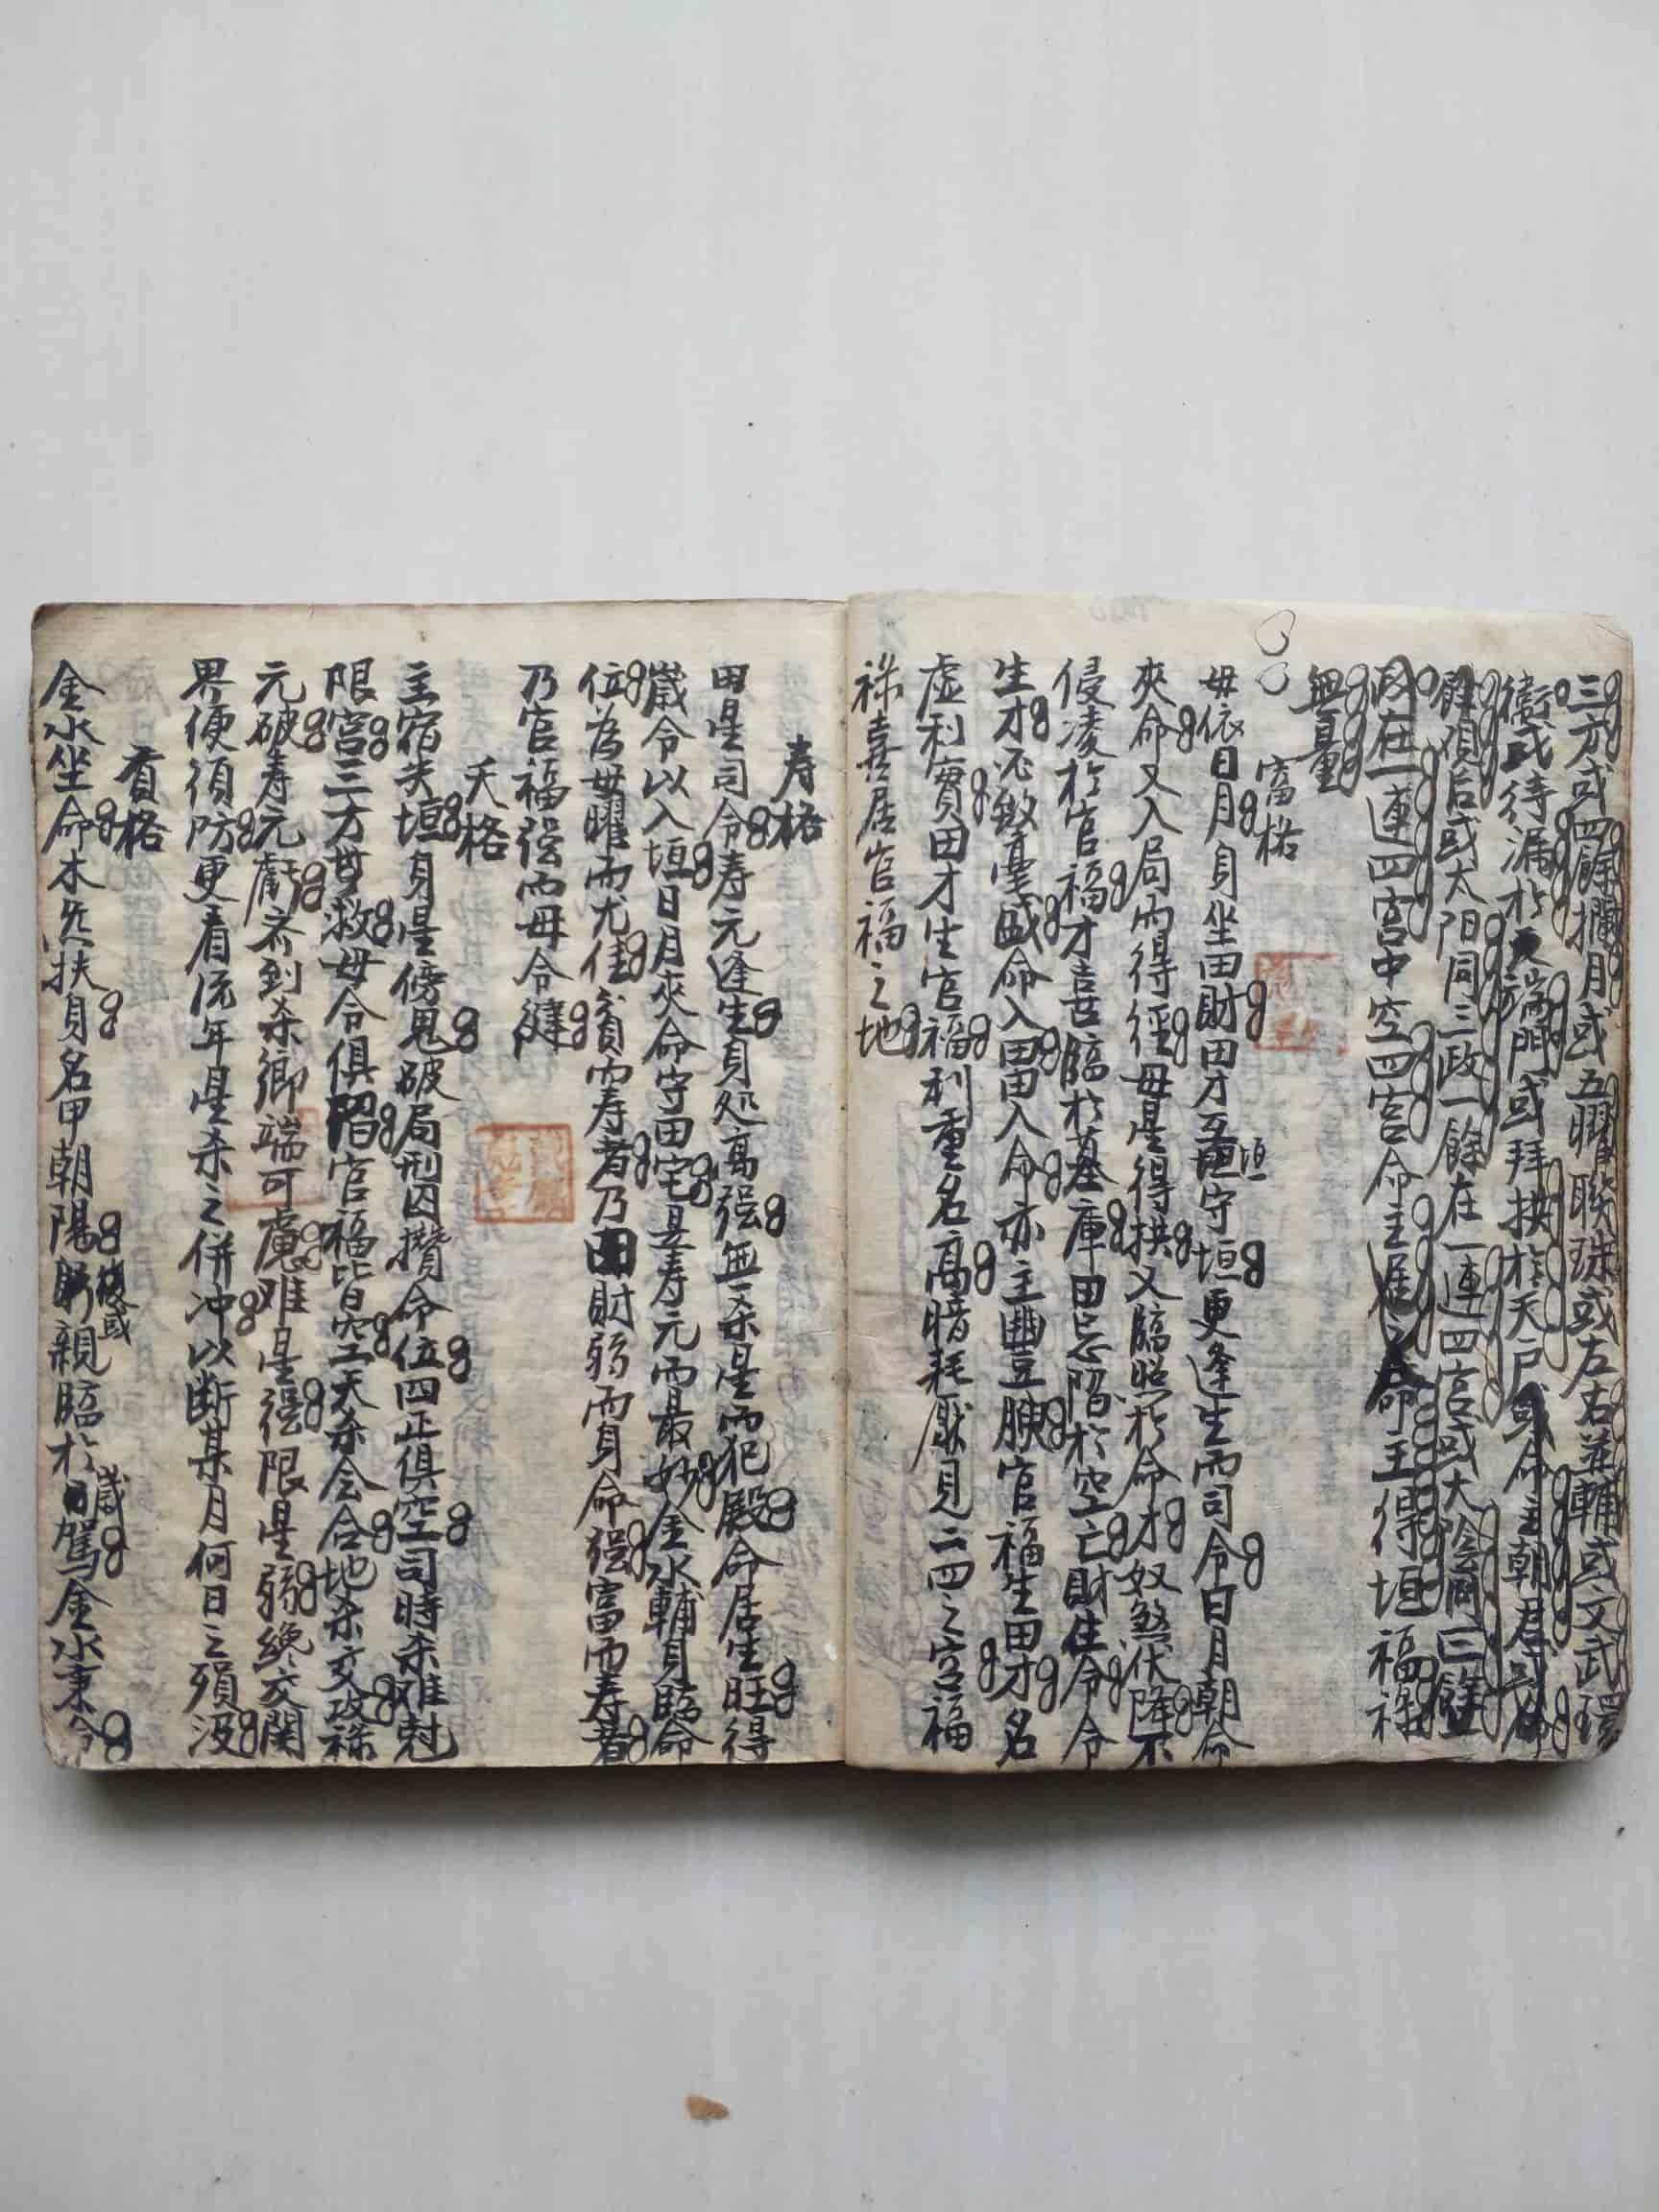 三方或四餘攔月或五曜聯珠或左右並輔或文武環
衛或待漏於端門或拜拱於天戶或命主朝君
餘須后或太阳同三政一餘在一連四宮或大陰同三餘
同在一連四宮中空四宮命主命主得垣福祿
無量
富格
毋依日月身坐田財田才互垣守垣更逢生而司令日月朝命
夾命又入局而得徑毋星得拱又臨照於命才奴煞伏降不
侵凌於官福才喜臨於墓庫田忌陷於空亡財住令令
生才必致豊盛命入田田入命亦主豐腴官福生田才名
虛利實田才生官福利重名高暗耗厭見二四之宮福
祿喜居官福之地
寿格
田星司令寿元逢生身处高强無杀星而犯殿命居生旺得
歲令以入垣日月夾命守田宅是寿元而最妙金水輔身臨命
位為毋曜而尤佳貧而寿者乃田財弱而身命强富而寿者
乃官福强而毋令健
夭格
主宿失垣身星傍鬼破局刑囚攢命位四正俱空司時杀难尅
限宮三方無救毋令俱陷官福皆空天杀会合地杀交攻祿
元破寿元虧若到杀鄉端可慮难星强限星弱纔交関
界便須防更看流年星杀之併冲以断某月何日之殞没
貴格
金水坐命木炁扶身名甲朝陽躬親臨於歲駕金水秉令